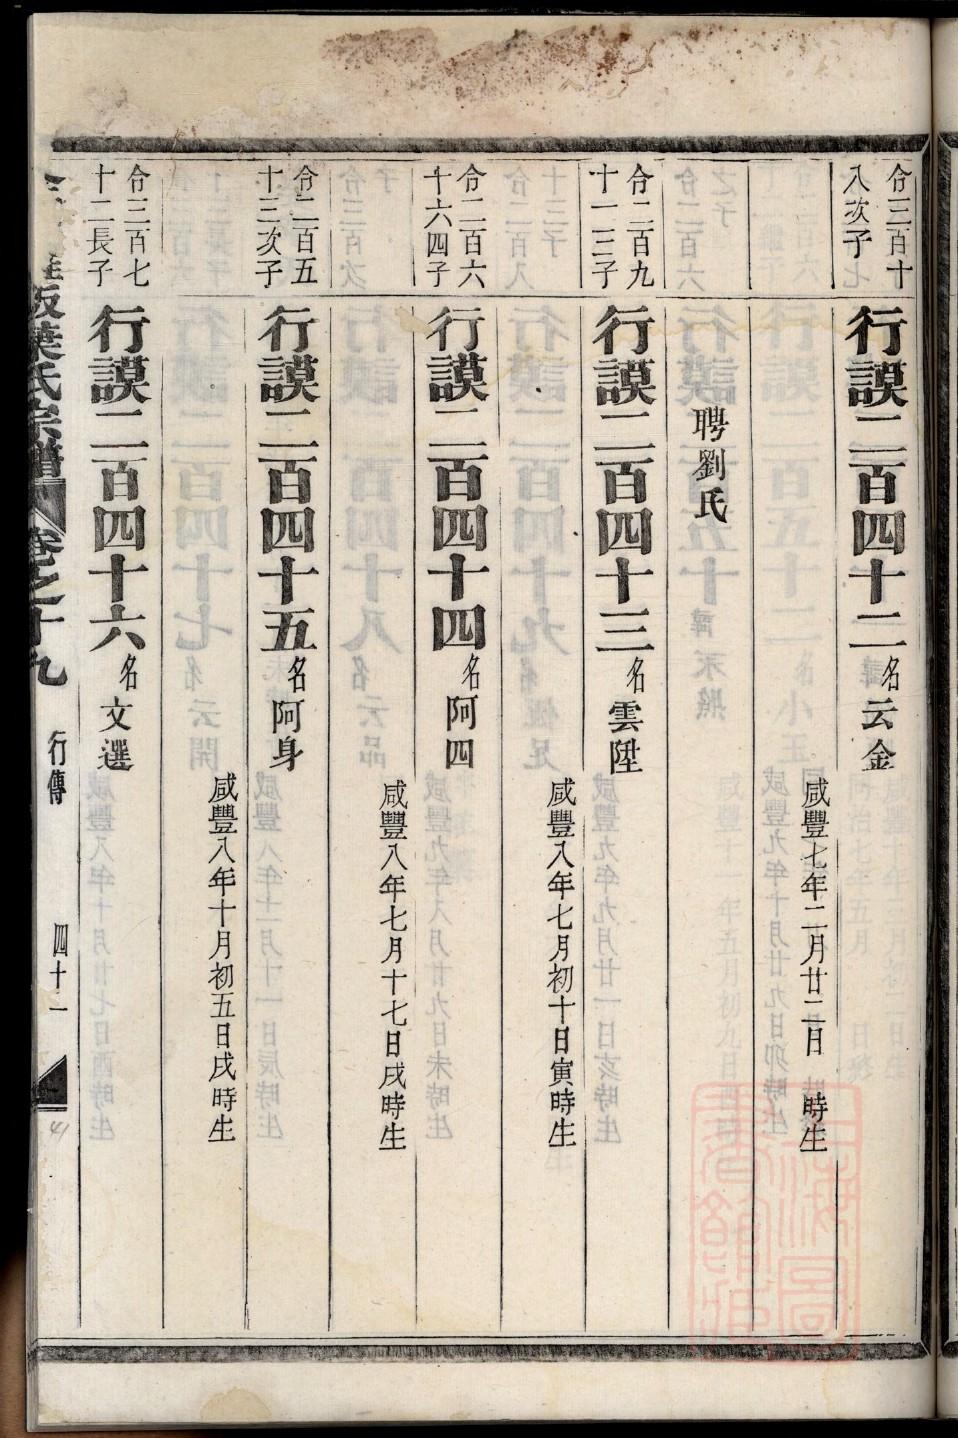 令三百十
八次子
行謨二百四十二
名云金
咸豐七年二月廿二日 時生
聘劉氏
令二百九
十一三子
行謨二百四十三
名雲陞
咸豐八年七月初十日寅時生
令二百六
十六四子
行謨二百四十四
名阿四
咸豐八年七月十七日戌時生
令二百五
十三次子
行謨二百四十五
名阿身
咸豐八年十月初五日戌時生
令三百七
十二長子
行謨二百四十六
名文選
葉氏宗譜
卷之十九
行傳
四十一